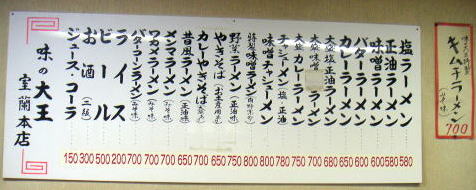 味の大王特製
キムチラーメン
(みそ味)
700
塩ラーメン
正油ラーメン
味噌ラーメン
バターラーメン
カレーラーメン
大盛 塩・正油ラーメン
大盛 味噌ラーメン
大盛 カレーラーメン
チャシューメン (塩・正油)
味噌チャシューメン
特製味噌ラーメン
野菜ラーメン (正油味)
やきそば
カレーやきそば
昔風ラーメン (正油味)
メンマラーメン (みそ味)
ワカメラーメン (みそ味)
バターコーンラーメン (みそ味)
ライス
ビール
お酒 (二級)
ジュース・コーラ
味の大王
室蘭本店
150 300 500 200 700 700 700 650 700 650 750 800 800 780 750 650 600 650 600 600 580 580